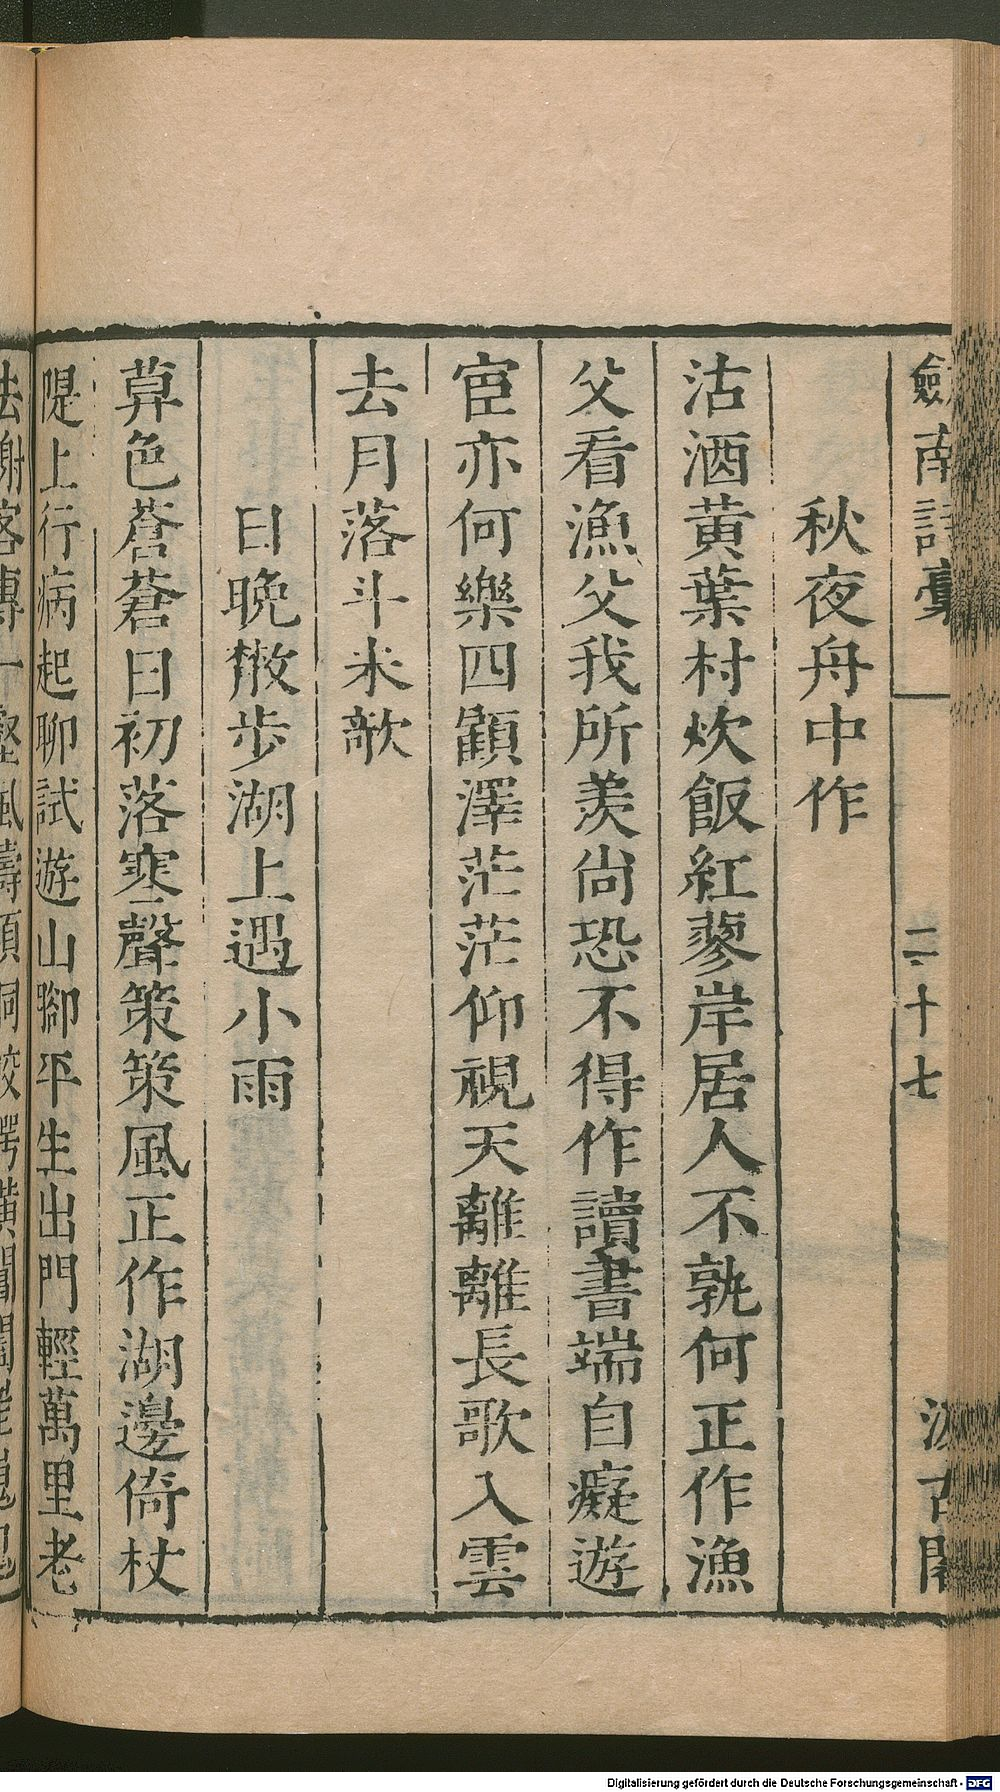 劒南詩稾
二十七
汲古閣
秋夜舟中作
沽酒黄葉村炊飯紅蓼岸居人不孰何正作漁
父看漁父我所羨尙恐不得作讀書端自癡遊
宦亦何樂四顧澤茫茫仰視天離離長歌入雲
去月落斗米欹
日晚散步湖上遇小雨
草色蒼蒼日初落寒聲策策風正作湖邊倚杖
隄上行病起聊試遊山腳平生出門輕萬里老
去謝客專一壑風濤澒洞蛟鱷橫
Digitalisierung gefördert durch die Deutsche Forschungsgemeinschaft - DFG